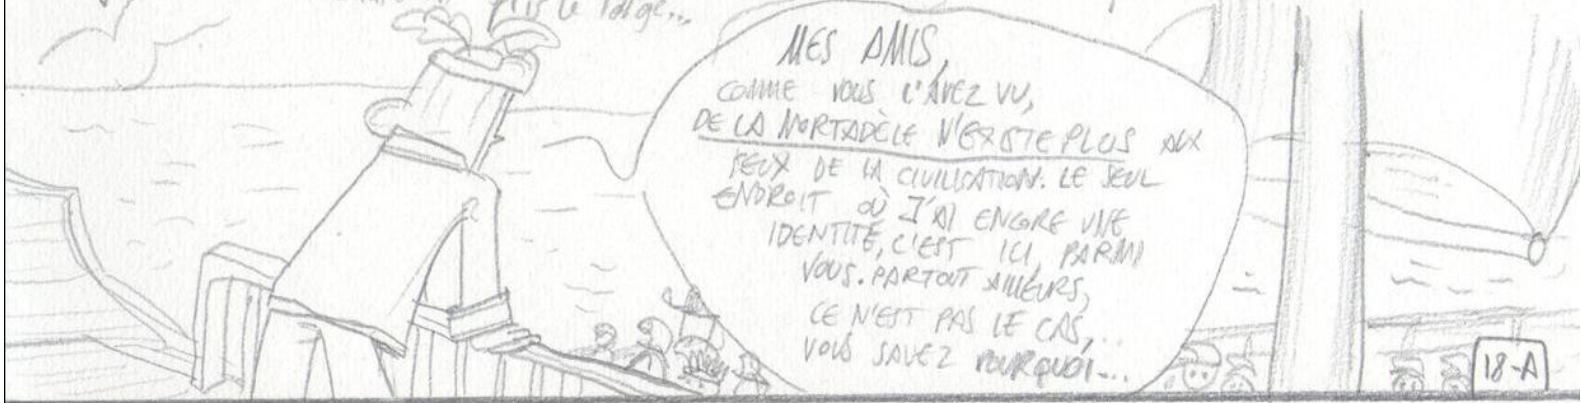 le large...
MES AMIS,
COMME VOUS L'AVEZ VU,
DE LA MORTADÈLE N'EXISTE PLUS AUX
YEUX DE LA CIVILISATION. LE SEUL
ENDROIT OÙ J'AI ENCORE UNE
IDENTITÉ, C'EST ICI, PARMI
VOUS. PARTOUT AILLEURS,
CE N'EST PAS LE CAS,...
VOUS SAVEZ POURQUOI...
18-A